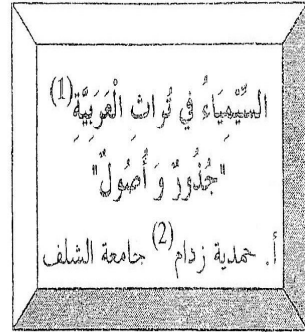 السِّيْمِيَاءُ في تُراثِ الْعَرَبِيَّةِ(1)
"جُذُورٌ وَ أُصُولٌ"
أ. حمدية زدام(2) جامعة الشلف